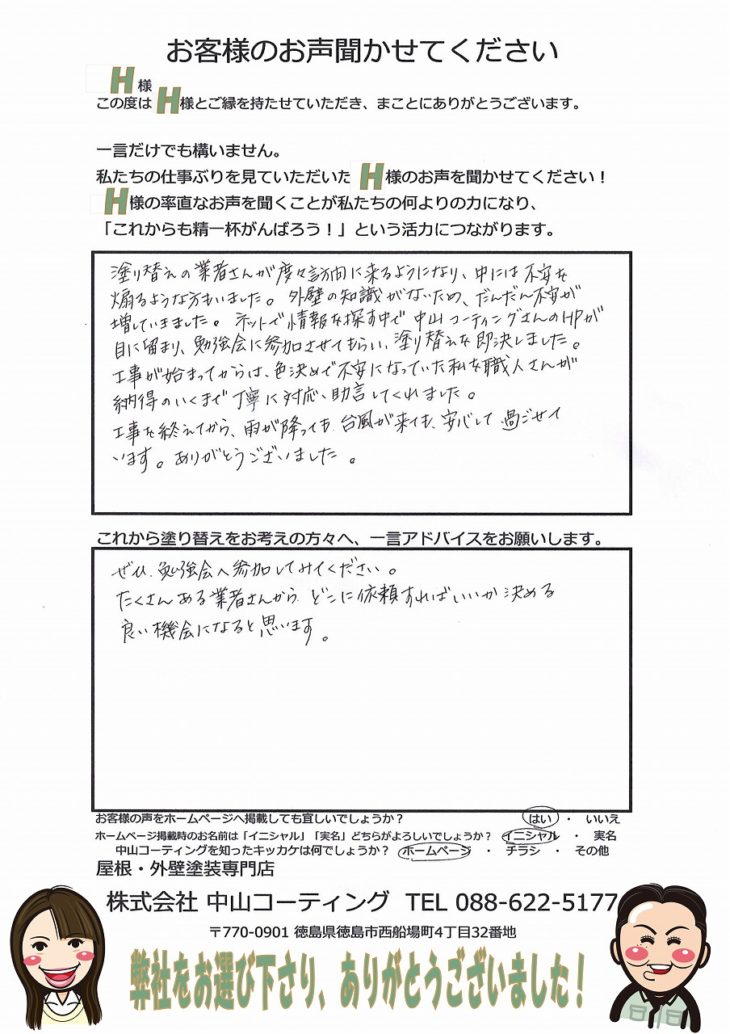 お客様のお声聞かせてください
H 様
この度は H 様とご縁を持たせていただき、まことにありがとうございます。
一言だけでも構いません。
私たちの仕事ぶりを見ていただいた H 様のお声を聞かせてください！
H 様の率直なお声を聞くことが私たちの何よりの力になり、
「これからも精一杯がんばろう！」という活力につながります。
塗り替えの業者さんが度々訪問に来るようになり、中には不安を
煽るような方もいました。外壁の知識がないため、だんだん不安が
増していきました。ネットで情報を探す中で中山コーティングさんのHPが
目に留まり、勉強会に参加させてもらい、塗り替えを即決しました。
工事が始まってからは、色決めで不安になっていた私を職人さんが
納得のいくまで丁寧に対応、助言してくれました。
工事を終えてから、雨が降っても、台風が来ても、安心して過ごせて
います。ありがとうございました。
これから塗り替えをお考えの方々へ、一言アドバイスをお願いします。
ぜひ、勉強会へ参加してみてください。
たくさんある業者さんから、どこに依頼すればいいか決める
良い機会になると思います。
お客様の声をホームページへ掲載しても宜しいでしょうか？ はい ・ いいえ
ホームページ掲載時のお名前は「イニシャル」「実名」どちらがよろしいでしょうか？ イニシャル ・ 実名
中山コーティングを知ったキッカケは何でしょうか？ ホームページ ・ チラシ ・ その他
屋根・外壁塗装専門店
株式会社 中山コーティング TEL 088-622-5177
〒770-0901 徳島県徳島市西船場町4丁目32番地
弊社をお選び下さり、ありがとうございました！